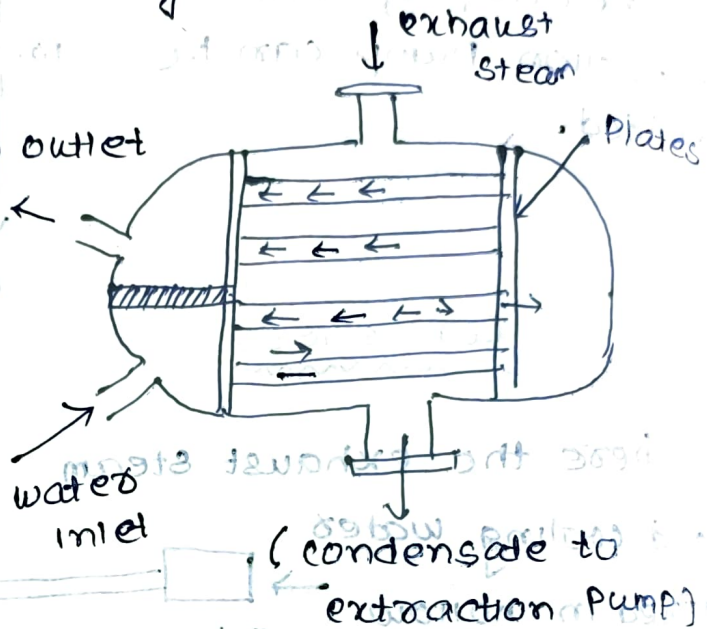 exhaust
steam
outlet
Plates
water
inlet
(condensate to
extraction Pump)